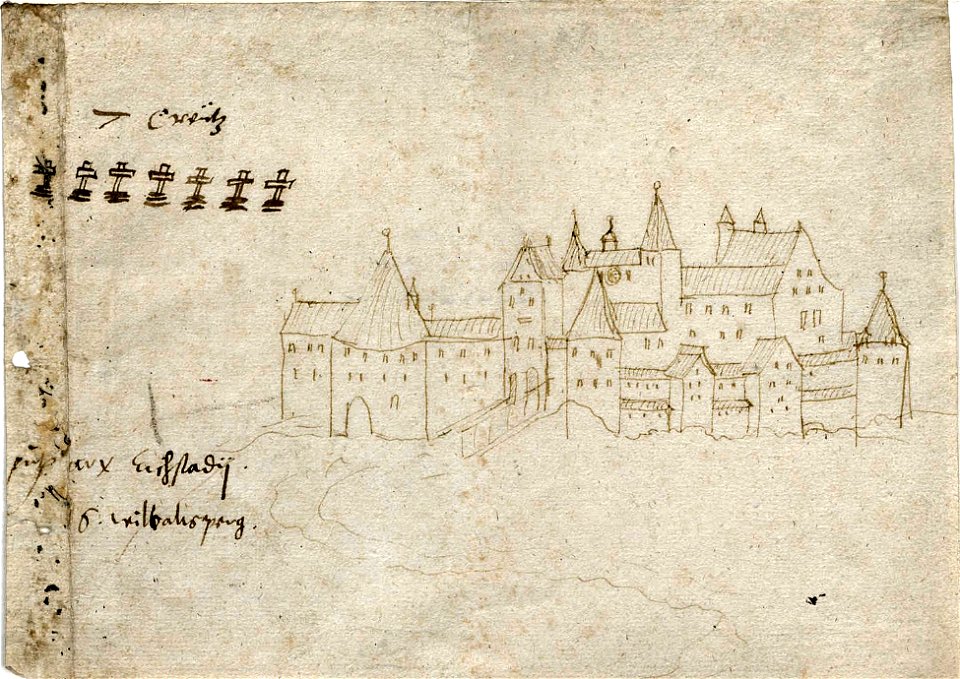 7 Creütz
arx Eichstadij.
S. wilbaltsperg.